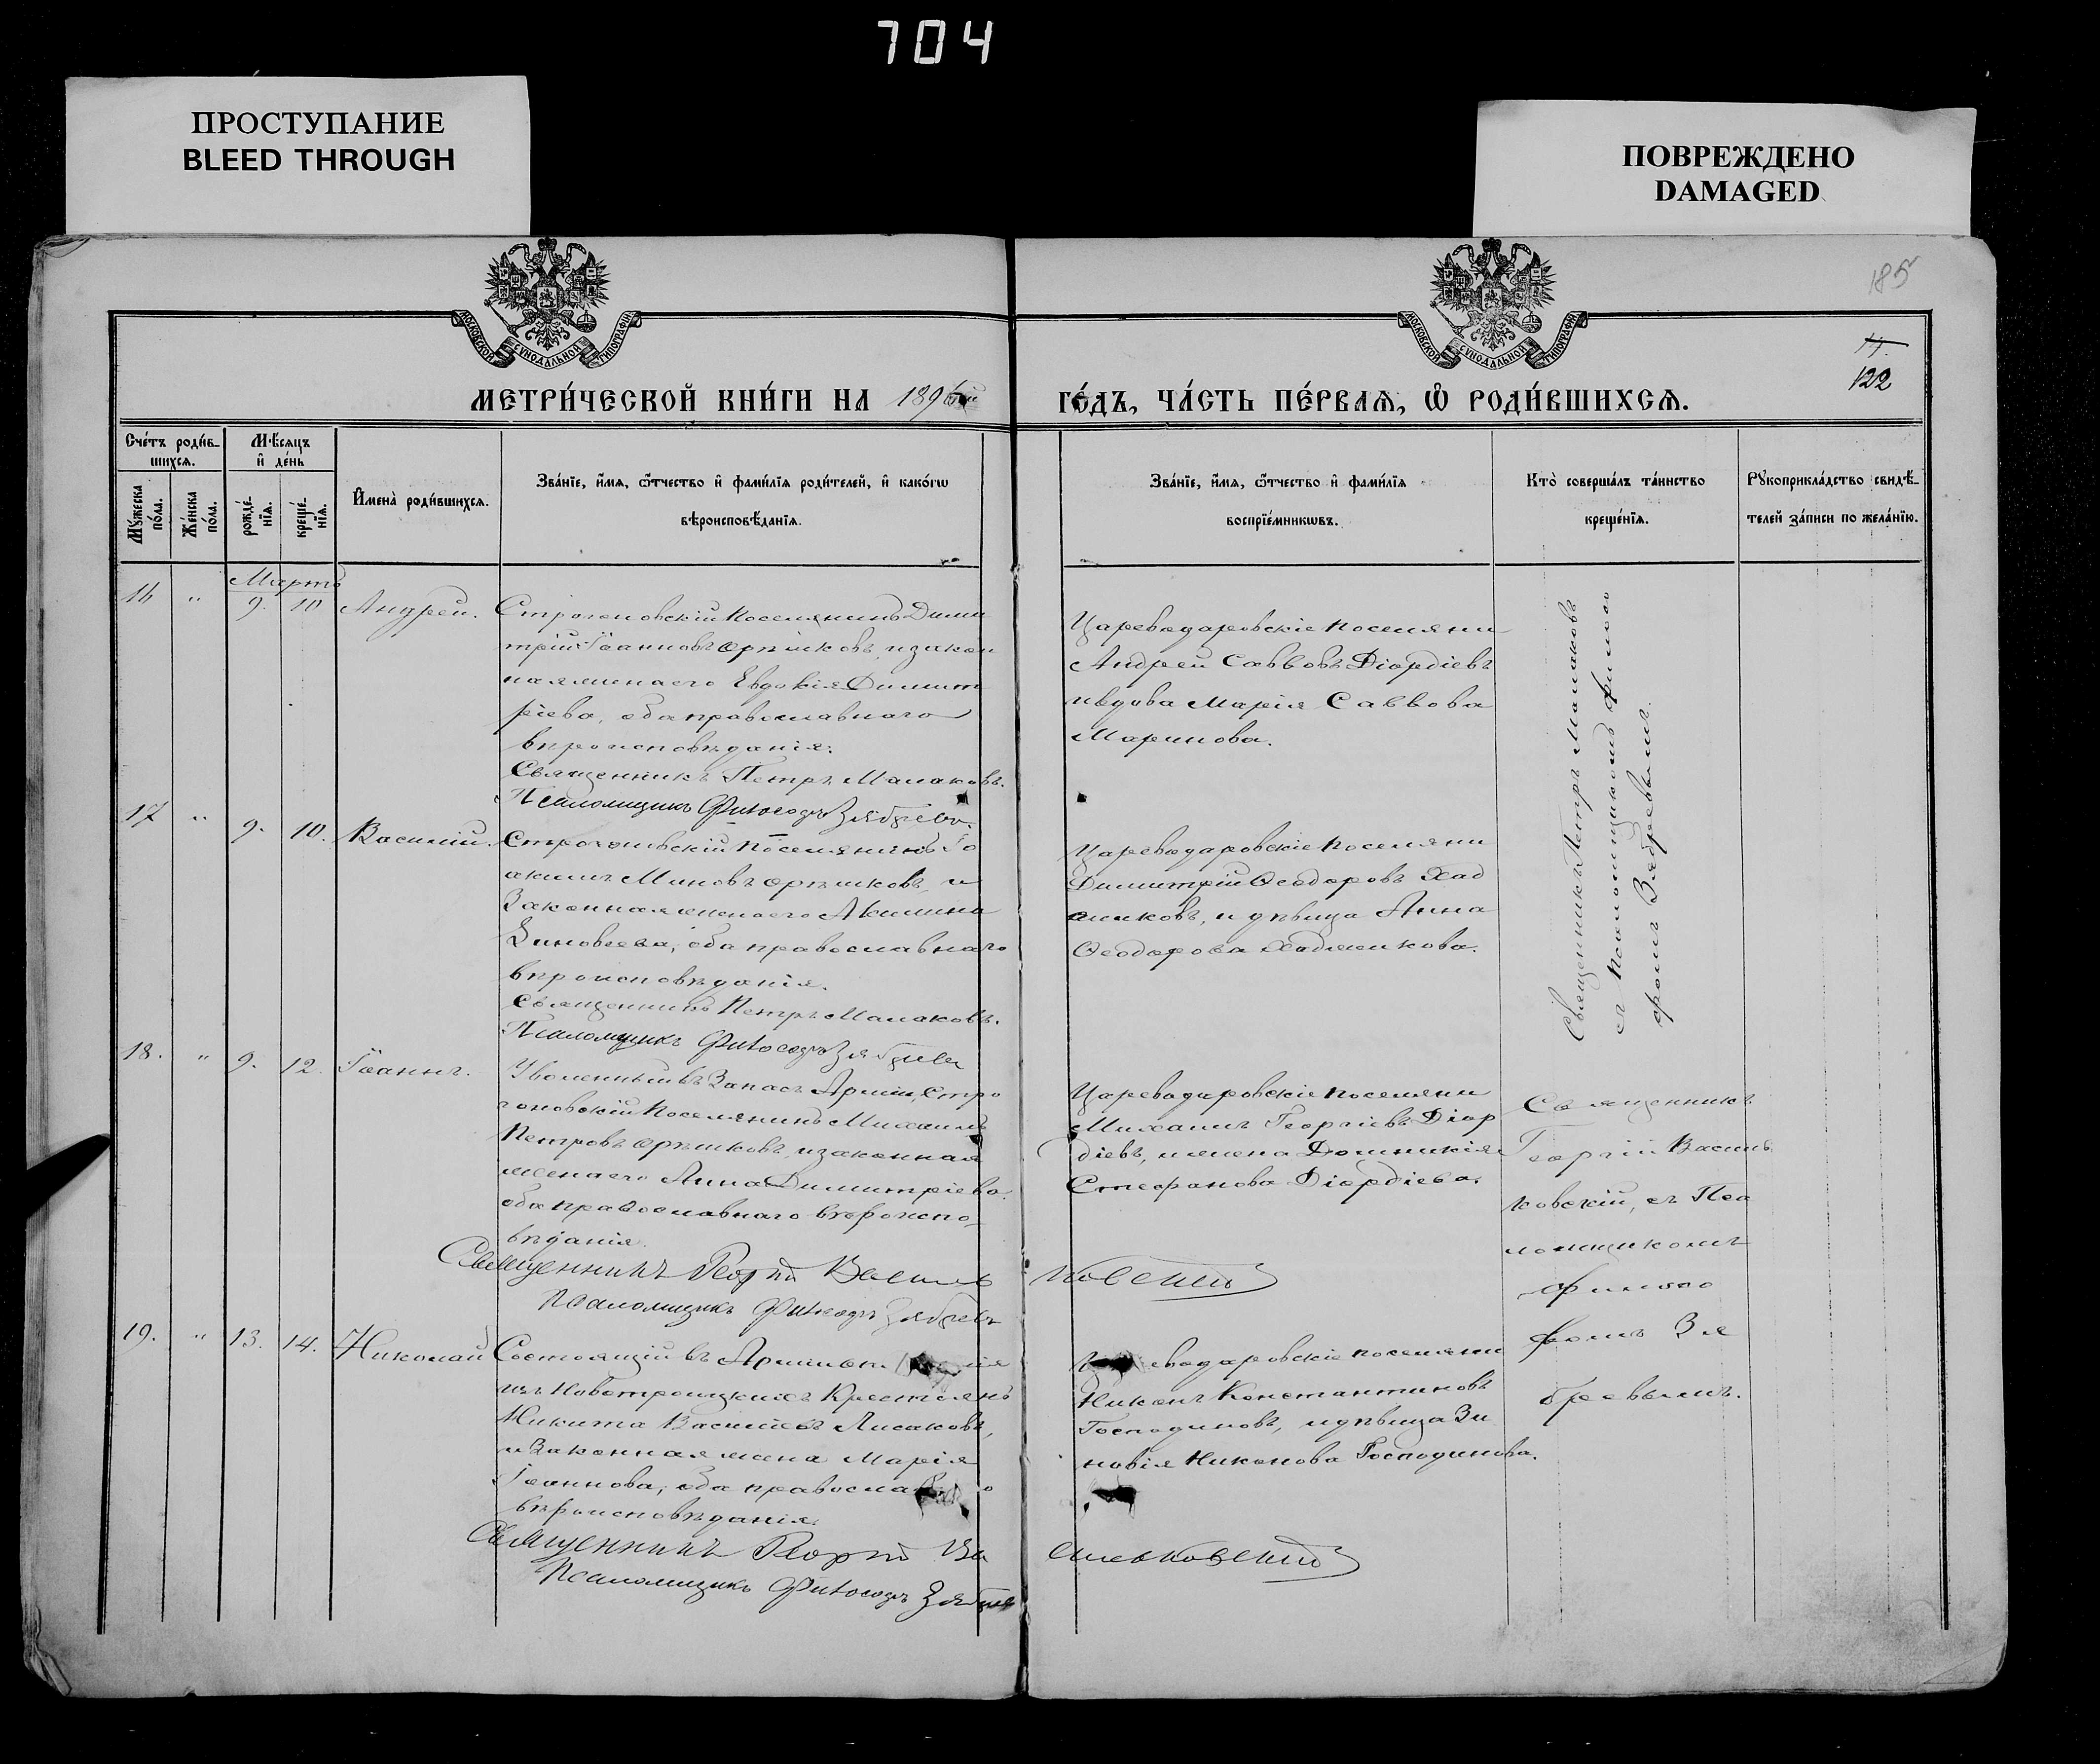 704
ПРОСТУПАНИЕ
BLEED THROUGH
ПОВРЕЖДЕНО
DAMAGED
185
МОСКОВСКОЙ СУНОДАЛЬНОЙ ТИПОГРАФІИ
МОСКОВСКОЙ СУНОДАЛЬНОЙ ТИПОГРАФІИ
122
МЕТРИ́ЧЕСКОЙ КНИ́ГИ НА 189
ГО́ДЪ, ЧА́СТЬ ПЕ́РВАѦ, Ѡ РОДИ́ВШИХСѦ.
Сче́тъ роди́в-
шихсѧ.
Мѣ́сяцъ
и де́нь
Мꙋ́жеска
по́ла.
Же́нска
по́ла.
рожде́-
нїѧ.
креще́-
нїѧ.
Имена̀ роди́вшихсѧ.
Зва́нїе, и́мѧ, ѻ҆́тчество и фами́лїѧ роди́телей, и како́гѡ
вѣроисповѣ́данїѧ.
Зва́нїе, и́мѧ, ѻ҆́тчество и фами́лїѧ
воспрїе́мникѡвъ.
Кто̀ соверша́лъ та́инство
креще́нїѧ.
Рꙋкоприкла́дство свидѣ́-
телей за́писи по жела́нїю.
Мартъ
16 " 9. 10 Андрей.
Строгоновскій поселянинъ Дими
трій Іоанновъ Орѣшковъ, и закон
ная жена его Евдокія Димит
ріева, оба православнаго
вѣроисповѣданія.
Священникъ Петръ Малаковъ.
Псаломщикъ Филосоѳъ Зябревъ.
Царевадаровскіе поселяни
Андрей Саввовъ Діордіевъ
и вдова Марія Саввова
Маринова.
Священникъ Петръ Малаковъ
съ псаломщикомъ Филосо
фомъ Зябревымъ.
17 " 9. 10. Василій.
Строгоновскій поселянинъ Іо
акимъ Миновъ Орѣшковъ, и
законная жена его Акилина
Зиновеева, оба православнаго
вѣроисповѣданія.
Священникъ Петръ Малаковъ.
Псаломщикъ Филосоѳъ Зябревъ
Царевадаровскіе поселяни
Димитрій Ѳеодоровъ Хад
жиковъ, и дѣвица Анна
Ѳеодорова Хаджикова.
18. " 9. 12. Іоаннъ.
Уволенный въ запасъ Арміи, Стро
гоновскій поселянинъ Михаилъ
Петровъ Орѣшковъ, и законная
жена его Анна Димитріева
оба православнаго вѣроиспо-
вѣданія.
Священникъ Георгій Василь ковскій
Псаломщикъ Филосоѳъ Зябревъ
Царевадаровскіе поселяни
Михаилъ Георгіевъ Діор
діевъ, и жена Домникія
Стефанова Діордіева.
Священникъ
Георгій Василь
ковскій, съ Пса
ломщикомъ
Филосо
фомъ Зя
бревымъ.
19. " 13. 14. Николай
Состоящій въ Арміи
изъ Новотроицкихъ Крестьянъ
Никита Васильевъ Лисаковъ,
и законная жена Марія
Іоаннова, оба православнаго
вѣроисповѣданія.
Священникъ Георгій Ва сильковскій
Псаломщикъ Филосоѳъ Зябревъ
Царевадаровскіе поселяни
Никонъ Константиновъ
Господиновъ, и дѣвица Зи
новія Никонова Господинова.